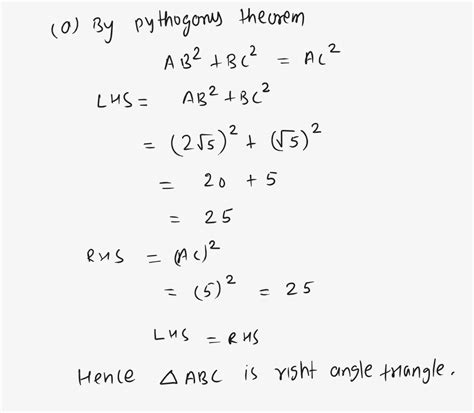 (0) By pythogorus theorem
AB² + BC² = AC²
LHS = AB² + BC²
= (2√5)² + (√5)²
= 20 + 5
= 25
RHS = (AC)²
= (5)² = 25
LHS = RHS
Hence △ABC is right angle triangle.